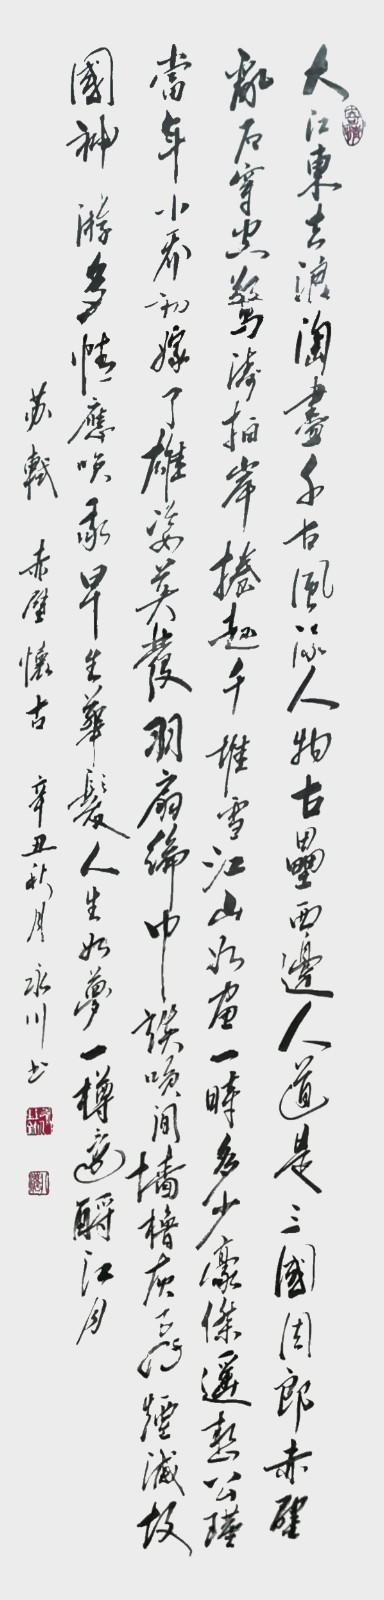 大江東去浪淘盡千古風流人物古壘西邊人道是三國周郎赤壁
亂石穿空驚濤拍岸捲起千堆雪江山如画一時多少豪傑遙想公瑾
當年小喬初嫁了雄姿英發羽扇綸巾談笑間墙櫓灰飛煙滅故
國神游多情應笑我早生華髮人生如夢一樽還酹江月
苏軾 赤壁懷古 辛丑秋月 永川书